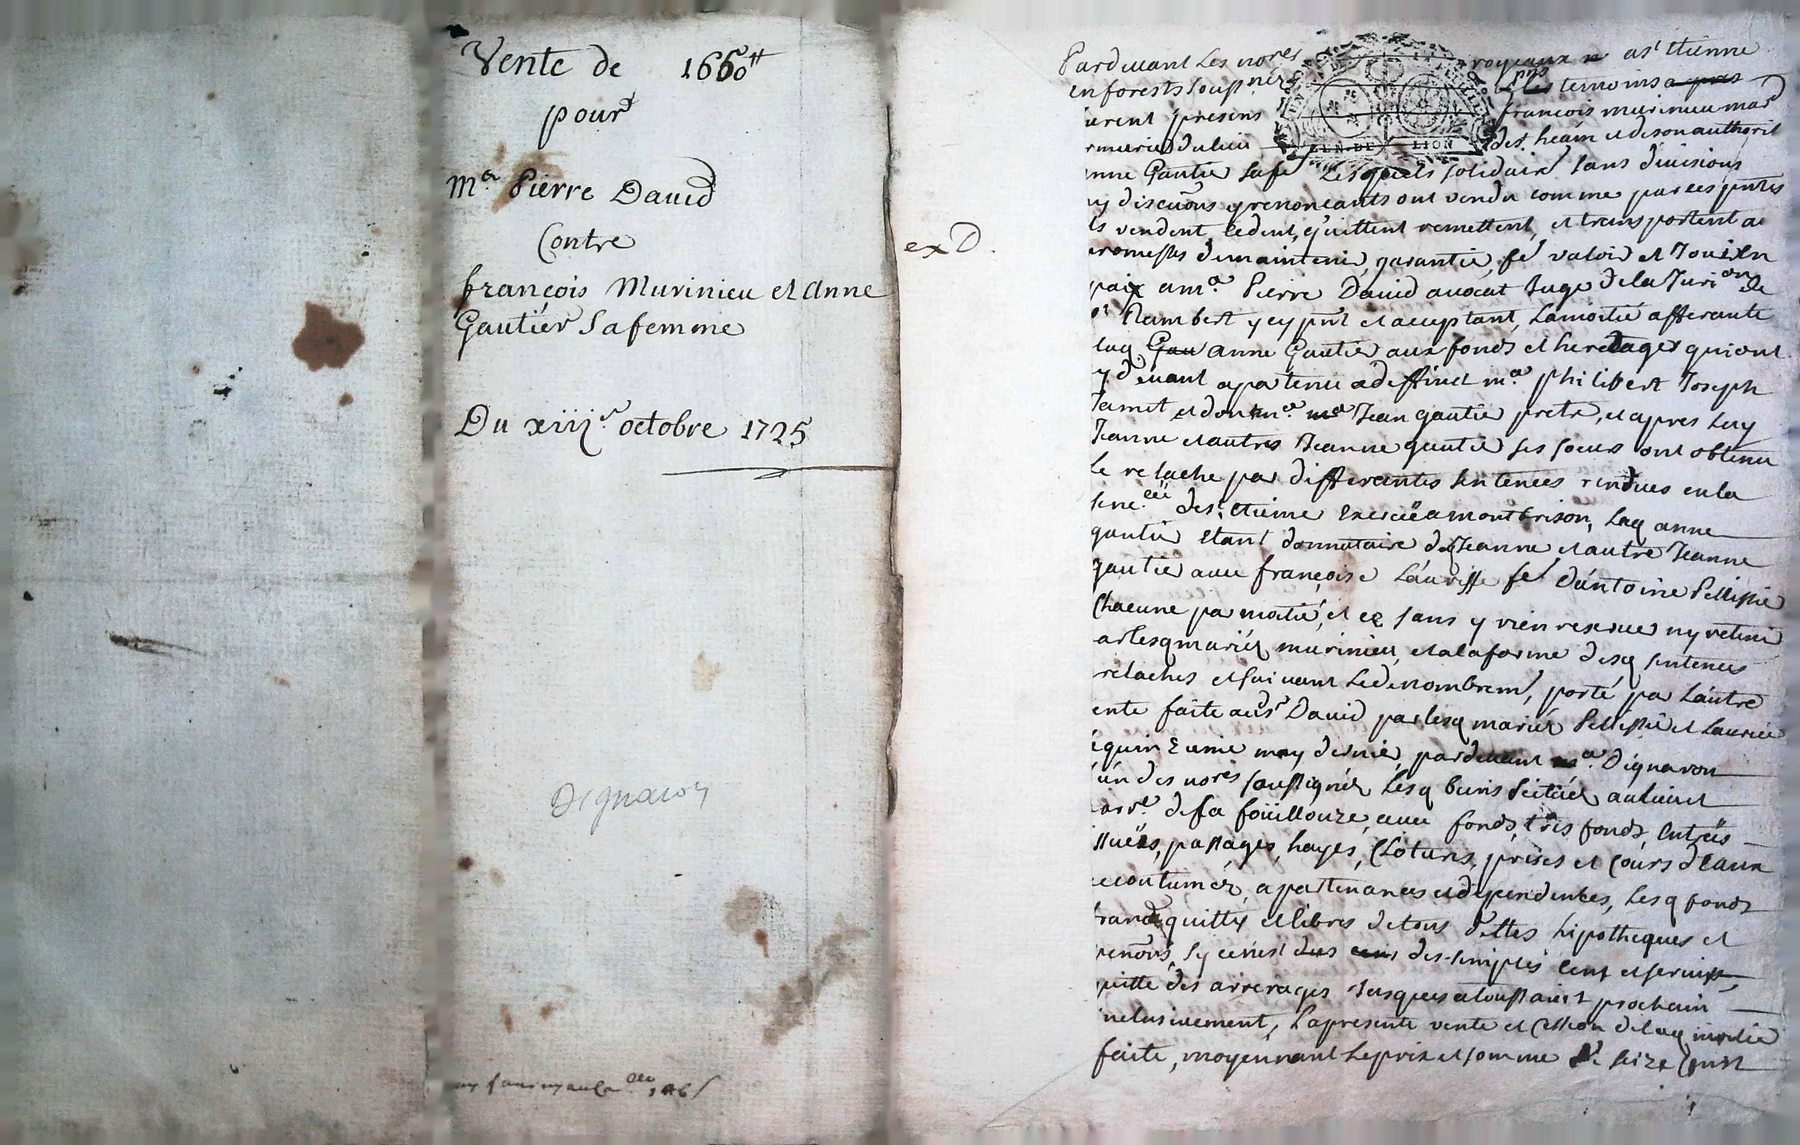 Vente de 1650 ₶
pour
Me. Pierre David
Contre
françois Murinieu et Anne
Gautier Sa femme
Du xiiije. octobre 1725
Dignaron
ex D.
GEN. DE LION
Pardevant Les nores royeaux a st Etienne
en forests soussnez les temoins
urent presens françois murinieu mard
rmurier du lieu de st. heain et de son authorité
nne Gautier sa fe Lesquels solidairt sans divisions
ny discuõns y renonceants ont vendu comme par ces pntes
ls vendent, cedent, quittent remettent, et transportent av
romesses de maintenir, garantir, fe valoir et Jouir en
paix a me. Pierre David avocat Juge de la Jurion de
st Rambert y cy pnt et acceptant, La moitié afferante
laq Gau anne Gautier aux fonds et heretages qui ont
cy devant apartenu a deffunct me. philibert Joseph
Jamet et dont me Jean gautier pretre, et apres Luy
Jeanne et autres Jeanne gautier ses soeurs ont obtenu
Le relache par differantes sentences rendues en la
senecée de st. Etienne Exercée a montbrison, Laq anne
gautier Etant donnataire desq Jeanne et autre Jeanne
gautier avec françoise Lauriffe fe d'antoine Pellissier
Chacune par moitié, et ce sans y rien reserver ny retenir
ar lesq mariez murinieu, et a la forme desq sentences
relaches et suivant Le denombremt, porté par L'autre
ente faite aud sr David par lesq mariez Pellissier et Laurice
e quinzeme may dernier, pardevant me. Dignaron
l'un des nores soussignez Lesq biens scitués au lieu et
parre. de la foüillouze, avec fonds, tres fonds, Entrées
ssuës, passages, hayes, Clotures, prises et Cours d'eaux
ccoutuméz, apartenances et dependences, Lesq fonds
francs quittes et libres de tous dettes hipotheques et
penõns, sy ce n'est des simples cens et servis,
quitte des arrerages Jusques a toussaint prochain
nclusivement, La presente vente et Cession de laq moitié
faite, moyennant Le prix et somme de seize Cent